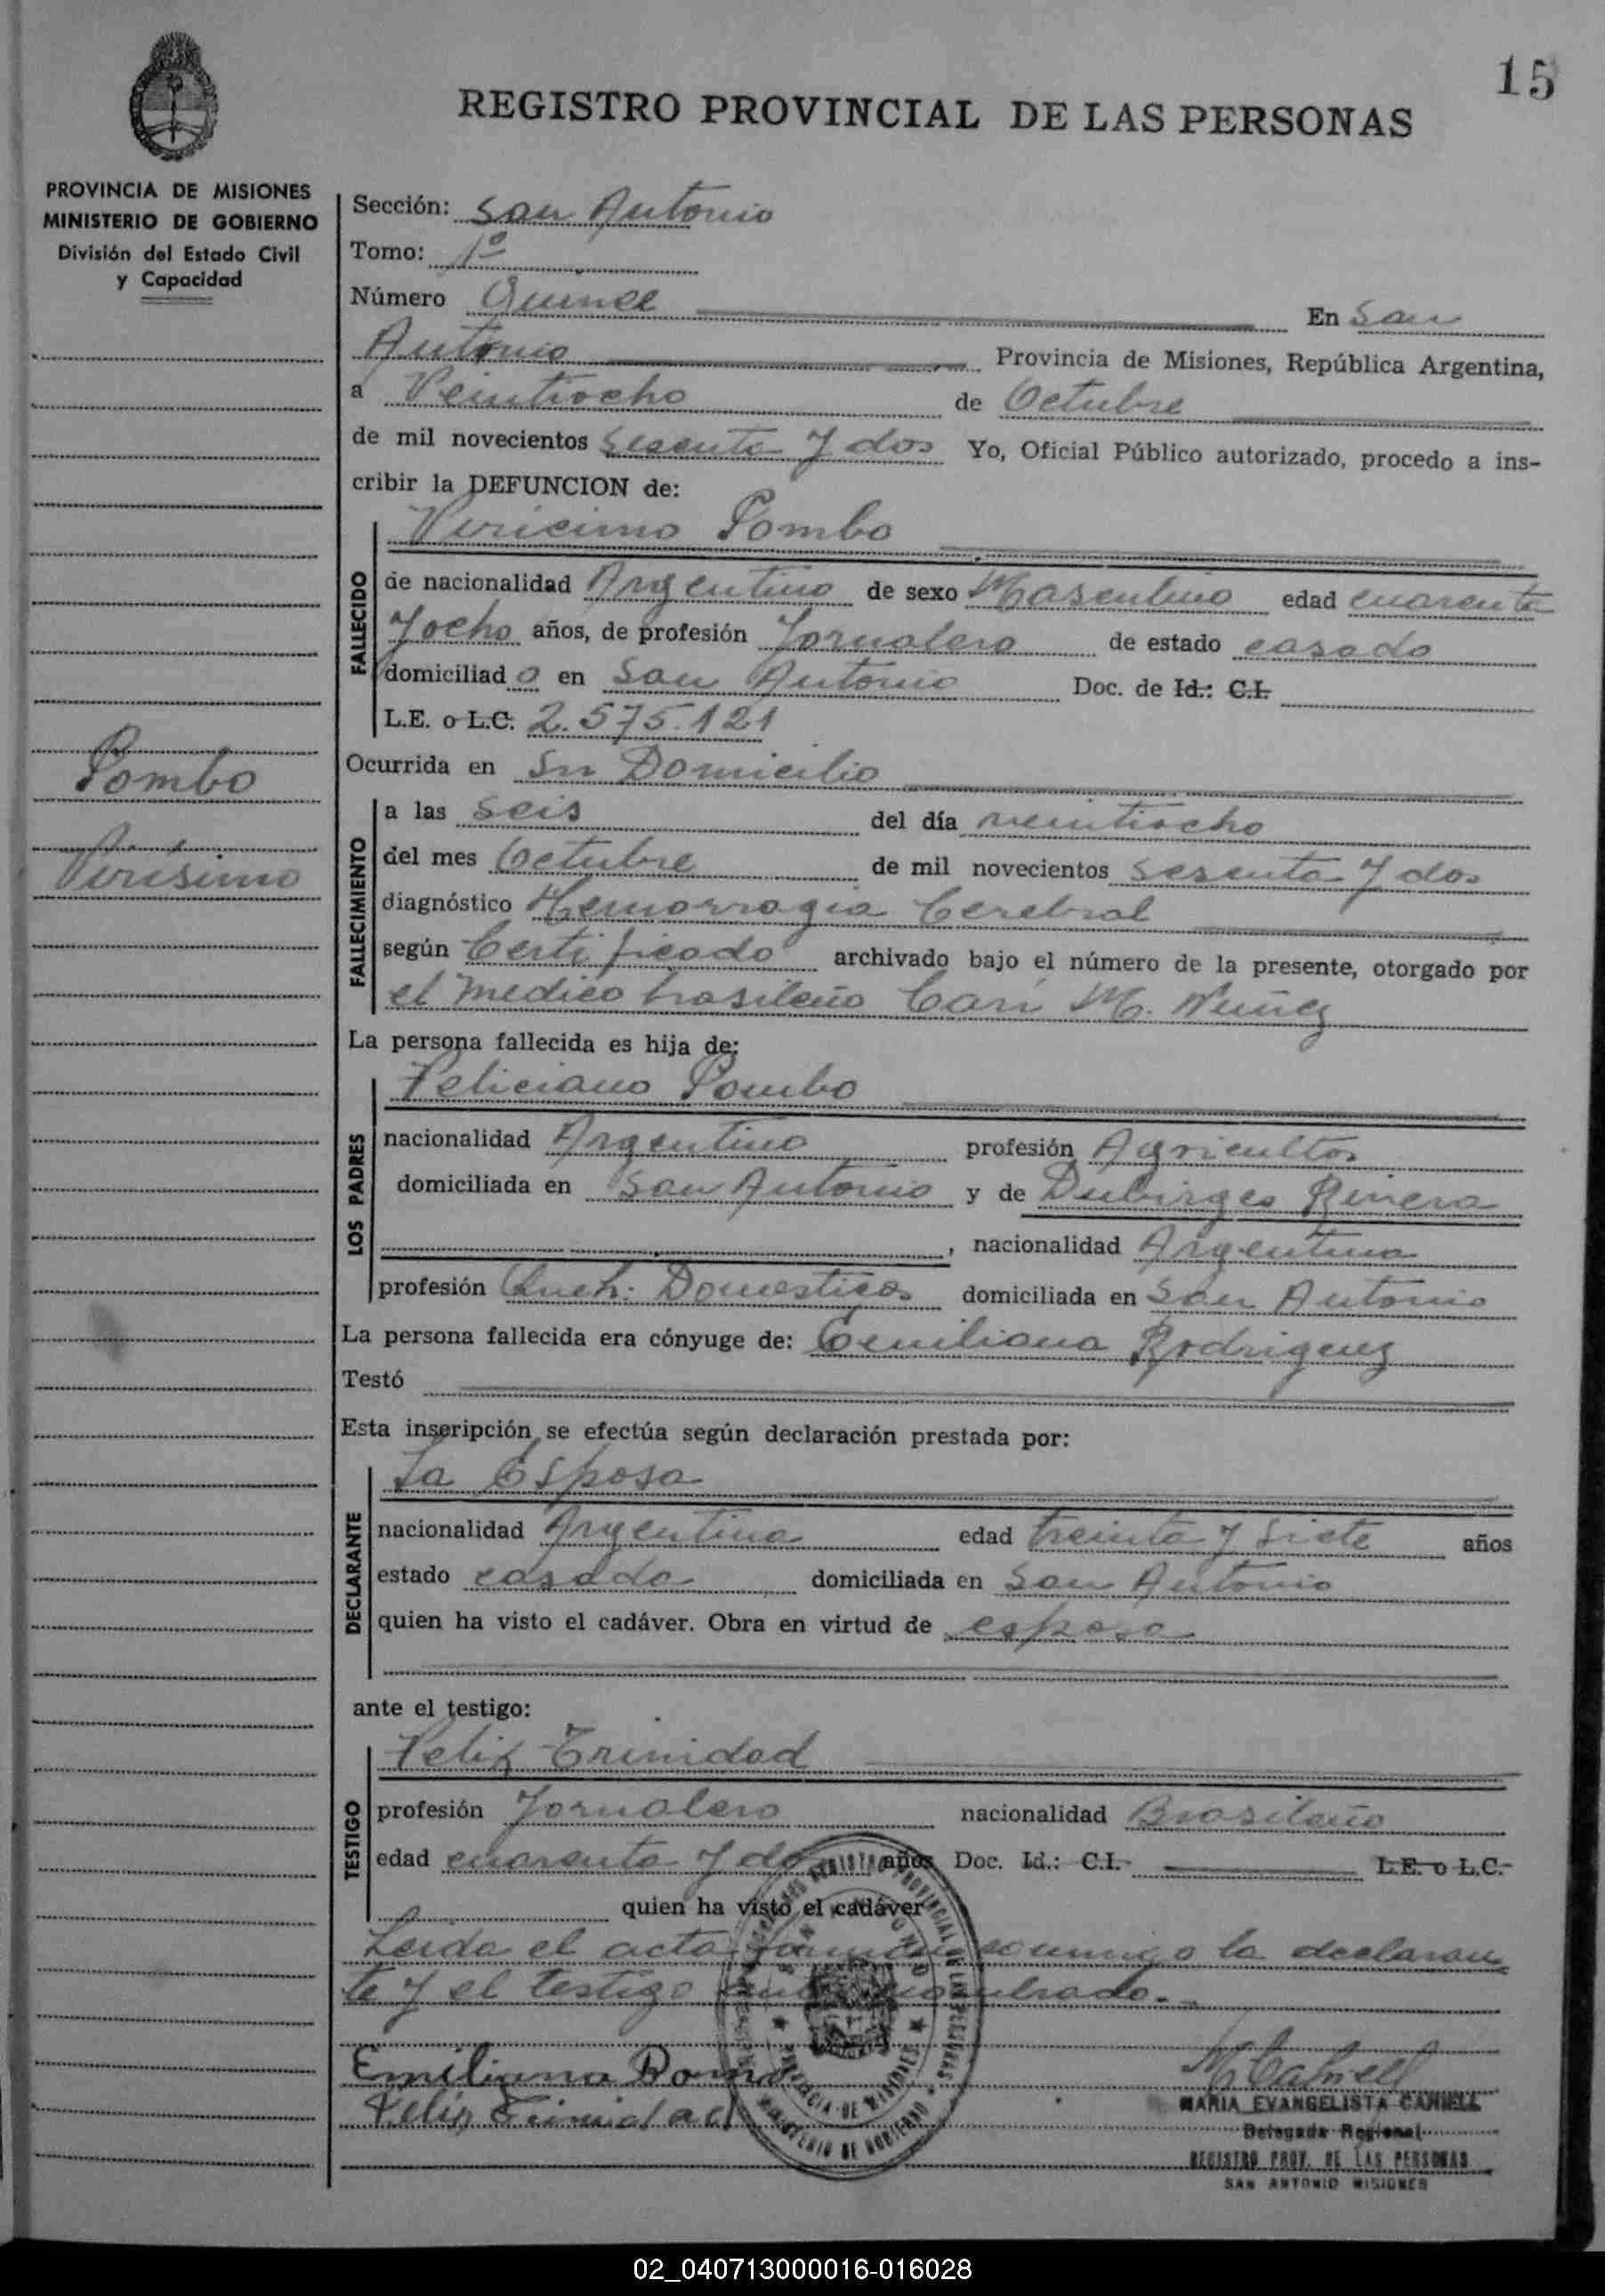 15
REGISTRO PROVINCIAL DE LAS PERSONAS
PROVINCIA DE MISIONES
MINISTERIO DE GOBIERNO
División del Estado Civil
y Capacidad
Sección: San Antonio
Tomo: 1º
Número Quince En San
Antonio Provincia de Misiones, República Argentina,
a Veintiocho de Octubre
de mil novecientos sesenta y dos Yo, Oficial Público autorizado, procedo a ins-
cribir la DEFUNCION de:
FALLECIDO
Viricimo Pombo
de nacionalidad Argentino de sexo Masculino edad cuarenta
y ocho años, de profesión Jornalero de estado casado
domiciliado en San Antonio Doc. de Id.: C.I.
L.E. o L.C. 2.575.121
Pombo
Virísimo
Ocurrida en Su Domicilio
FALLECIMIENTO
a las seis del día veintiocho
del mes Octubre de mil novecientos sesenta y dos
diagnóstico Hemorragia Cerebral
según Certificado archivado bajo el número de la presente, otorgado por
el medico brasileño Cari M. Nuñez
La persona fallecida es hija de:
LOS PADRES
Feliciano Pombo
nacionalidad Argentino profesión Agricultor
domiciliada en San Antonio y de Dubirges Rivera
, nacionalidad Argentina
profesión Queh. Domesticos domiciliada en San Antonio
La persona fallecida era cónyuge de: Emiliana Rodriguez
Testó
Esta inscripción se efectúa según declaración prestada por:
DECLARANTE
La Esposa
nacionalidad Argentina edad treinta y siete años
estado casada domiciliada en San Antonio
quien ha visto el cadáver. Obra en virtud de esposa
ante el testigo:
TESTIGO
Feliz Trinidad
profesión Jornalero nacionalidad Brasileño
edad cuarenta y dos años Doc. Id.: C.I. L.E. o L.C.
quien ha visto el cadáver
Leida el acta conmigo la declaran
te y el testigo
Emiliana
Feliz Trinidad
MARIA EVANGELISTA
Delegada Regional
REGISTRO PROV. DE LAS PERSONAS
SAN ANTONIO MISIONES
02_040713000016-016028